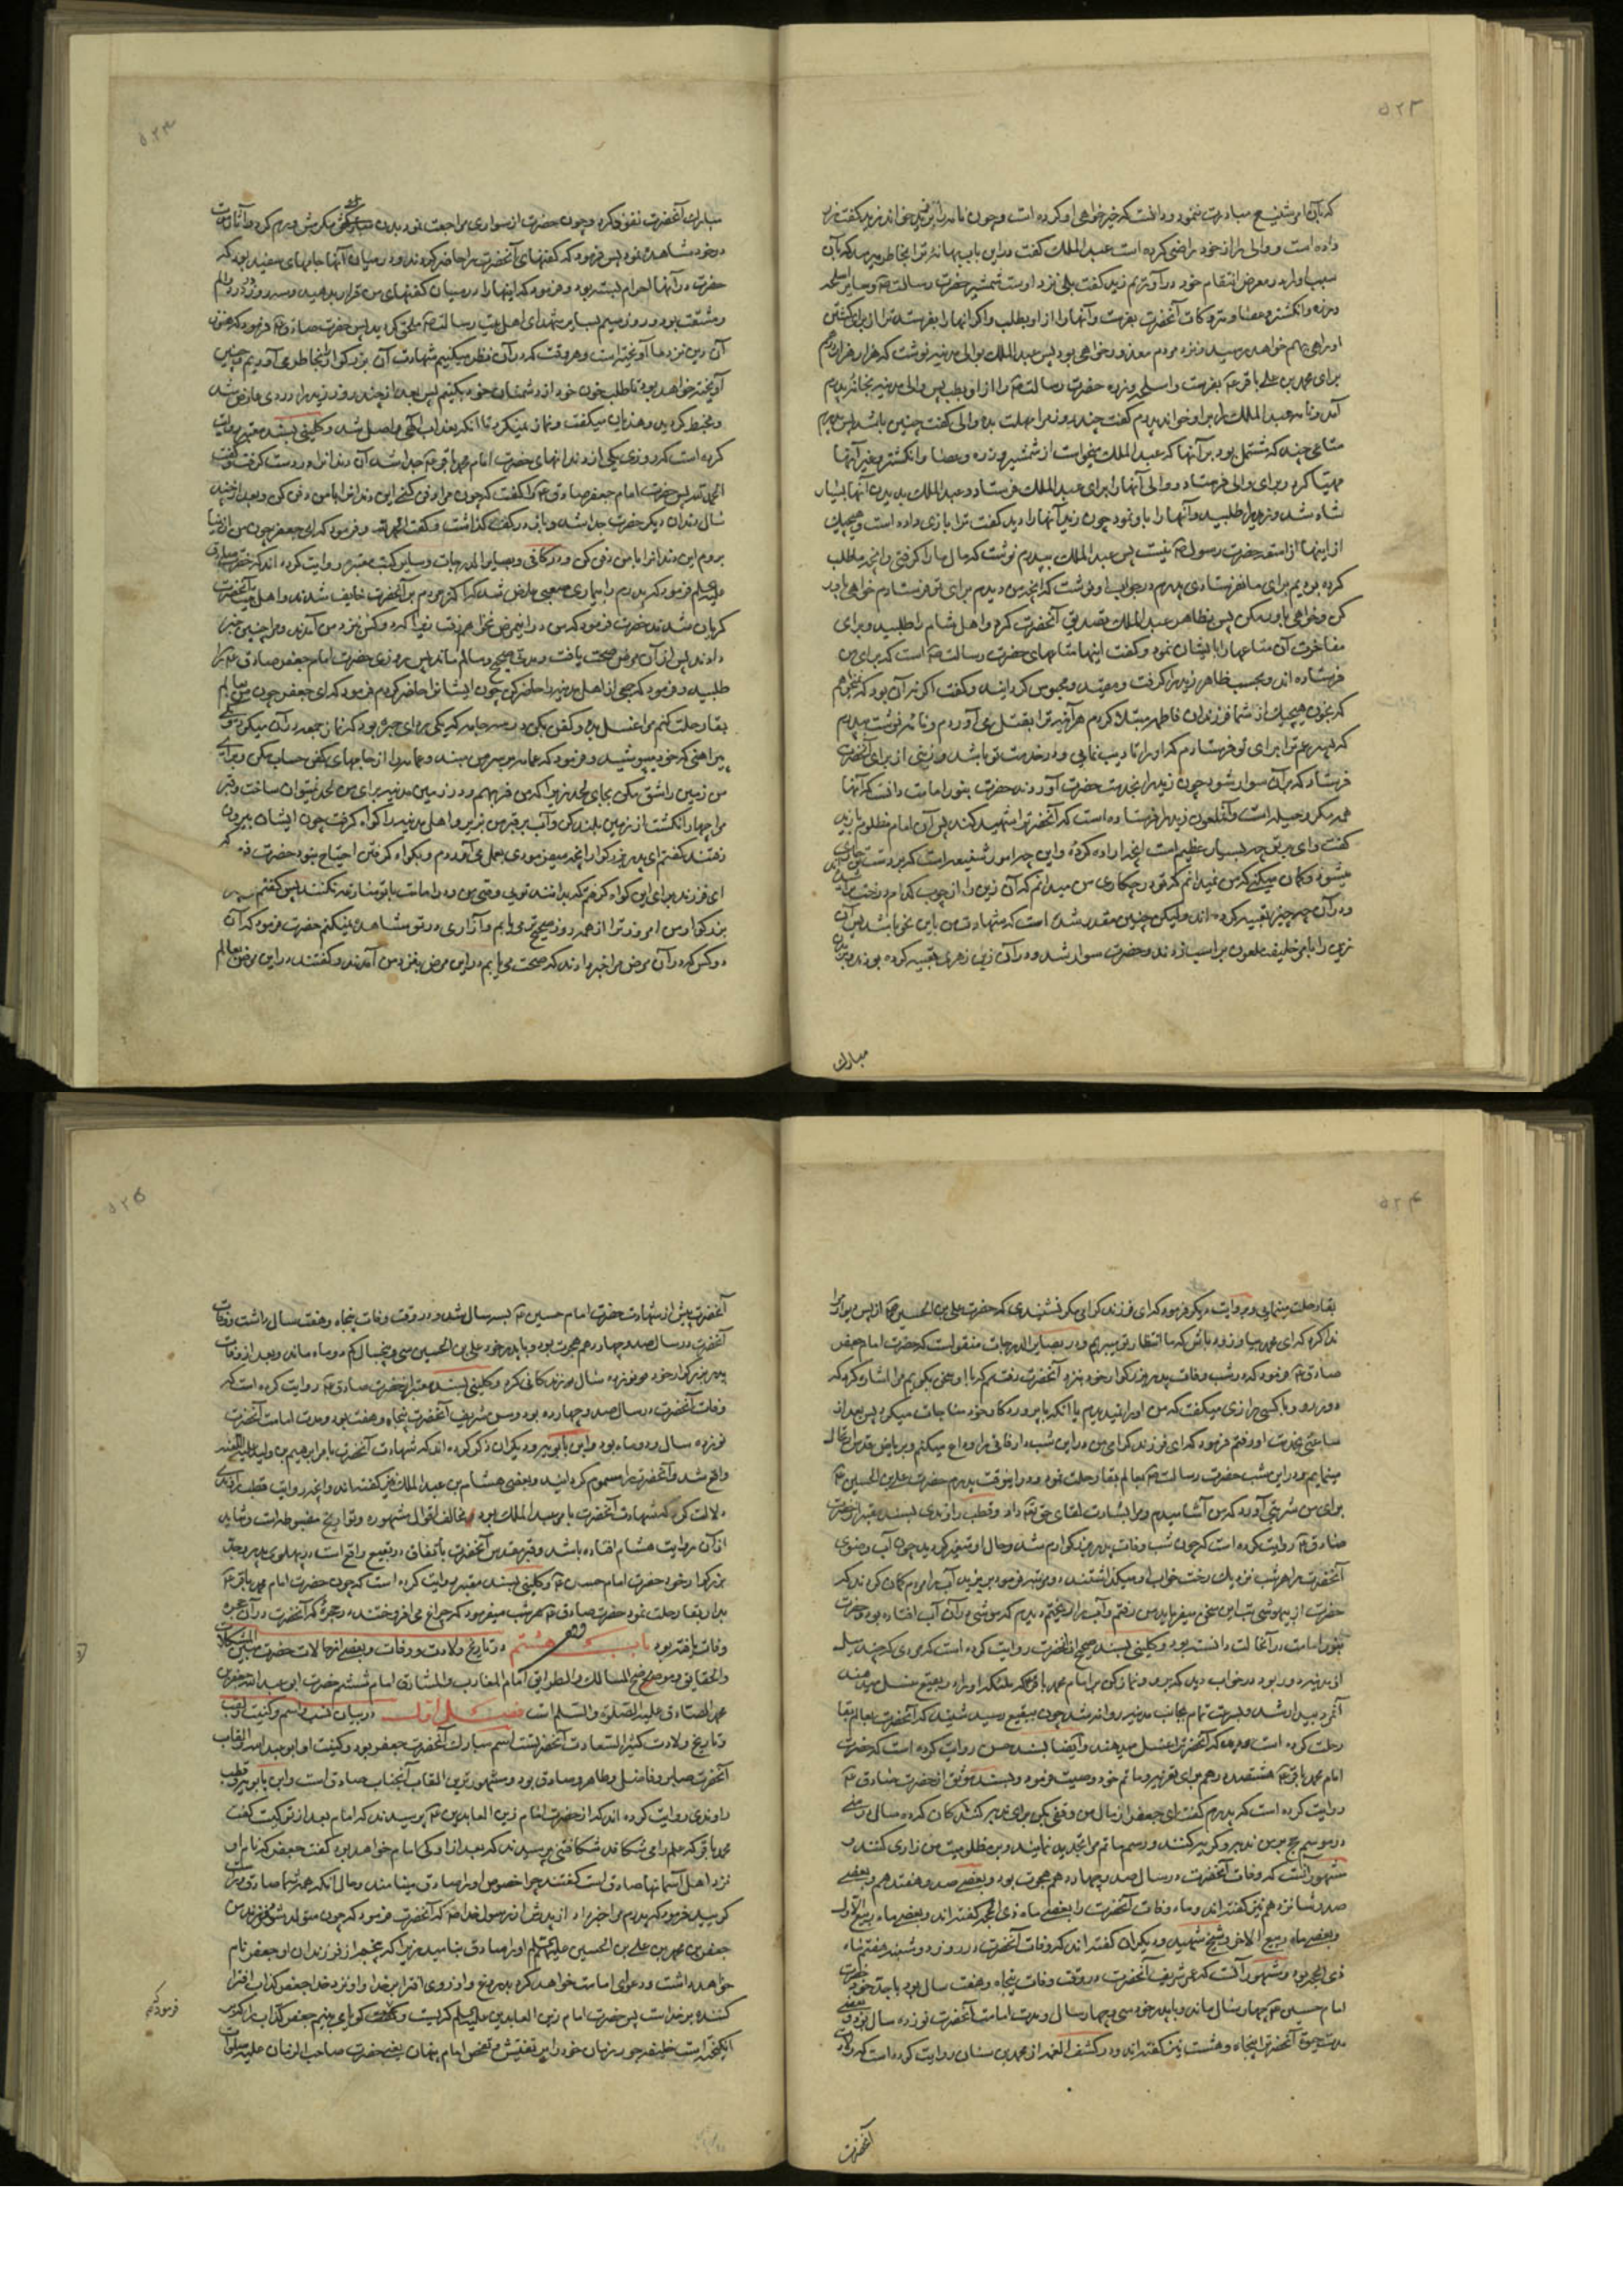 ۵۲۳
که بآن امر شنیع مبادرت ننمود و دانست که خیرخواهی او کرده است و چون نامه را بر زید خواند زید گفت زر
داده است و والی را از خود راضی کرده است عبد الملک گفت در این باب بهانه ترا بخاطر میرسد که بآن
سبب او را در معرض انتقام خود در آوریم زید گفت بلی نزد او است شمشیر حضرت رسالت و سایر اسلحه
و زره و انگشتر و عصا و متروکات آنحضرت بفرست و آنها را از او بطلب و اگر آنها را نفرستد ترا از برای کشتن
او راهی بهم خواهد رسید و نزد مردم معذور خواهی بود پس عبد الملک بوالی مدینه نوشت که هزار هزار درهم
برای محمد بن علی باقر بفرست و اسلحه و زره حضرت رسالت را از او بطلب پس والی مدینه بخانه پدرم
آمد و نامه عبد الملک را برای او خواند پدرم گفت چند روز مرا مهلت بده والی گفت چنین باشد پس پدرم
متاعی چند که مشتمل بود بر آنها که عبد الملک میخواست از شمشیر و زره و عصا و انگشتر و غیر آنها
مهیا کرد و برای والی فرستاد و والی آنها را برای عبد الملک فرستاد و عبد الملک بدیدن آنها بسیار
شاد شد و زید را طلبید و آنها را باو نمود چون زید آنها را دید گفت ترا بازی داده است و هیچیک
از اینها از امتعه حضرت رسول نیست پس عبد الملک بپدرم نوشت که مال ما را گرفتی و آنچه ما طلب
کرده بودیم برای ما نفرستادی پدرم در جواب او نوشت که آنچه من دیدم برای تو فرستادم خواهی باور
کن و خواهی باور مکن پس بظاهر عبد الملک تصدیق آنحضرت کرد و اهل شام را طلبید و برای
مفاخرت آن متاعها را بایشان نمود و گفت اینها متاعهای حضرت رسالت است که برای من
فرستاده اند و بحسب ظاهر زید را گرفت و مقید و محبوس گردانید و گفت اگر نه آن بود که نمیخواهم
که بخون هیچیک از شما فرزندان فاطمه مبتلا گردم هر آینه ترا بقتل می آوردم و نامه نوشت بپدرم
که پسر عم ترا برای تو فرستادم که او را تادیب نمایی و در خدمت تو باشد و زینی از برای آنحضرت
فرستاد که بر آن سوار شود چون زید را بخدمت حضرت آوردند حضرت بنور امامت دانست که آنها
همه مکر و حیله است و آنملعون زید را فرستاده است که آنحضرت را شهید کند پس آن امام مظلوم بزید
گفت وای بر تو چه بسیار عظیم است آنچه اراده کردهٔ و این چه امور شنیعه است که بر دست تو جاری
میشود و گمان میکنی که من نمیدانم که تو در چه کاری من میدانم که آن زین را از چوب کدام درخت تراشیده اند
و در آن چه چیز تعبیه کرده اند ولیکن چنین مقدر شده است که شهادت من باین نحو باشد پس آن
زین را بامر خلیفه ملعون بر اسب زدند و حضرت سوار شد و در آن زین زهری تعبیه کرده بودند
مبارک
۵۲۳
مبارک آنحضرت نفوذ کرد و چون حضرت از سواری مراجعت نمود بدن مبارکش ورم کرد و آثار موت
در خود مشاهده نمود پس فرمود که کفنهای آنحضرت را حاضر کردند و در میان آنها جامهای سفید بود که
حضرت در آنها احرام بسته بود و فرمود که اینها را در میان کفنهای من قرار بدهید و سه روز در درد و الم
و مشقت بود و روز سیم بسایر شهدای اهل بیت رسالت ملحق گردید پس حضرت صادق فرمود که هنوز
آن زین نزد ما آویخته است و هر وقت که در آن نظر میکنیم شهادت آن بزرگوار را بخاطر می آوریم و چنین
آویخته خواهد بود تا طلب خون خود از دشمنان خود بکنیم پس بعد از چند روز زید را دردی عارض شد
و مخبط گردید و هذیان میگفت و نماز نمیکرد تا آنکه بعذاب الهی واصل شد و کلینی بسند معتبر روایت
کرده است که روزی یکی از دندانهای حضرت امام محمد باقر جدا شد آن دندان را در دست گرفت و گفت
الحمد لله پس حضرت امام جعفر صادق را گفت که چون مرا دفن کنی این دندان را با من دفن کن و بعد از چند
سال دندان دیگر حضرت جدا شد و باز در کف گذاشت و گفت الحمد لله و فرمود که ای جعفر چون من از دنیا
بروم این دندان را با من دفن کن و در کافی و بصایر الدرجات و سایر کتب معتبره روایت کرده اند که حضرت صادق
علیه السلام فرمود که پدرم را بیماری صعبی عارض شد که اکثر مردم بر آنحضرت خایف شدند و اهل بیت آنحضرت
گریان شدند حضرت فرمود که من در این مرض نخواهم رفت زیرا که دو کس نزد من آمدند و مرا چنین خبر
دادند پس از آن مرض صحت یافت و مدتی صحیح و سالم ماند پس روزی حضرت امام جعفر صادق را
طلبید و فرمود که جمعی از اهل مدینه را حاضر کن چون ایشان را حاضر کردم فرمود که ای جعفر چون من بعالم
بقا رحلت کنم مرا غسل بده و کفن بکن در سه جامه که یکی ردای حبره بود که نماز جمعه در آن میکرد و یکی
پیراهنی که خود میپوشید و فرمود که عمامه بر سر من ببند و عمامه را از جامهای کفن حساب مکن و برای
من زمین را شق بکن بجای لحد زیرا که من فربهم و در زمین مدینه برای من لحد نمیتوان ساخت و قبر
مرا چهار انگشت از زمین بلند کن و آب بر قبر من بریز و اهل مدینه را گواه گرفت چون ایشان بیرون
رفتند گفتم ای پدر بزرگوار آنچه میفرمودی بعمل می آوردم و بگواه گرفتن احتیاج نبود حضرت فرمود که
ای فرزند برای این گواه گرفتم که بدانند تویی وصی من و در امامت با تو منازعه نکنند پس گفتم ای پدر
بزرگوار من امروز ترا از همه روز صحیح تر می یابم و آزاری در تو مشاهده نمیکنم حضرت فرمود که آن
دو کس که در آن مرض مرا خبر دادند که صحت می یابم در این مرض بنزد من آمدند و گفتند در این مرض بعالم
۵۲۴
بقا رحلت مینمایی و بروایت دیگر فرمود که ای فرزند گرامی مگر نشنیدی که حضرت علی بن الحسین از پس دیوار مرا
ندا کرد که ای محمد بیا و زود باش که ما انتظار تو میبریم و در بصایر الدرجات منقولست که حضرت امام جعفر
صادق فرمود که در شب وفات پدر بزرگوار خود بنزد آنحضرت رفتم که با او سخن بگویم مرا اشاره کرد که
دور رو و با کسی رازی میگفت که من او را نمیدیدم یا آنکه با پروردگار خود مناجات میکرد پس بعد از
ساعتی بخدمت او رفتم فرمود که ای فرزند گرامی من در این شب دار فانی را وداع میکنم و بریاض قدس ارتحال
مینمایم و در این شب حضرت رسالت بعالم بقا رحلت نمود و در این وقت پدرم حضرت علی بن الحسین
برای من شربتی آورد که من آشامیدم و مرا بشارت لقای حق تعالی داد و قطب راوندی بسند معتبر از حضرت
صادق روایت کرده است که چون شب وفات پدر بزرگوارم شد و حال او متغیر گردید چون آب وضوی
آنحضرت را هر شب نزدیک رخت خواب او میگذاشتند دو مرتبه فرمود بریزید آب را مردم گمان کردند که
حضرت از بیهوشی تب این سخن میفرماید من رفتم و آب را ریختم دیدم که موشی در آن آب افتاده بود و حضرت
بنور امامت در آنحالت دانسته بود و کلینی بسند صحیح از آنحضرت روایت کرده است که مردی که چند میل
از مدینه دور بود در خواب دید که برو و نماز کن بر امام محمد باقر که ملائکه او را در بقیع غسل میدهند
آنمرد بیدار شد و بسرعت تمام بجانب مدینه روانه شد چون ببقیع رسید شنید که آنحضرت بعالم بقا
رحلت کرده است و ملائکه آنحضرت را غسل میدهند و ایضا بسند حسن روایت کرده است که حضرت
امام محمد باقر هشتصد درهم برای تعزیه و ماتم خود وصیت فرمود و بسند موثق از حضرت صادق
روایت کرده است که پدرم گفت ای جعفر از مال من وقفی بکن برای ندبه کنندگان که ده سال در منی
در موسم حج بر من ندبه و گریه کنند و رسم ماتم مرا تجدید نمایند و بر مظلومیت من زاری کنند و
مشهور آنست که وفات آنحضرت در سال صد و چهاردهم هجرت بود و بعضی صد و هفدهم و بعضی
صد و شانزدهم نیز گفته اند و ماه وفات آنحضرت را بعضی ماه ذی الحجه گفته اند و بعضی ماه ربیع الاول
و بعضی ماه ربیع الاخر و شیخ شهید و دیگران گفته اند که وفات آنحضرت در روز دوشنبه هفتم ماه
ذی الحجه بود و مشهور آنست که عمر شریف آنحضرت در وقت وفات پنجاه و هفت سال بود با جد خود حضرت
امام حسین چهار سال ماند و با پدر خود سی و چهار سال و مدت امامت آنحضرت نوزده سال بود و بعضی
مدت عمر آنحضرت را پنجاه و هشت نیز گفته اند و در کشف الغمه از محمد بن سنان روایت کرده است که ولادت
آنحضرت
۵۲۵
آنحضرت پیش از شهادت حضرت امام حسین بسه سال شد و در وقت وفات پنجاه و هفت سال داشت وفات
آنحضرت در سال صد و چهاردهم هجرت بود و با پدر خود علی بن الحسین سی و پنجسال کم دو ماه ماند و بعد از وفات
پدر بزرگوار خود نوزده سال زندگانی کرد و کلینی بسند معتبر از حضرت صادق روایت کرده است که
وفات آنحضرت در سال صد و چهارده بود و سن شریف آنحضرت پنجاه و هفت بود و مدت امامت آنحضرت
نوزده سال و دو ماه بود و ابن بابویه و دیگران ذکر کرده اند که شهادت آنحضرت بامر ابراهیم بن ولید علیه اللعنه
واقع شد و آنحضرت را مسموم گردانید و بعضی هشام بن عبد الملک نیز گفته اند و آنچه روایت قطب راوندی
دلالت کرد که شهادت آنحضرت بامر عبد الملک بود مخالف اقوال مشهوره و تواریخ مضبوطه است و شاید
از آن روایت هشام افتاده باشد و قبر مقدس آنحضرت باتفاق در بقیع واقع است در پهلوی پدر و جد
بزرگوار خود حضرت امام حسن و کلینی بسند معتبر روایت کرده است که چون حضرت امام محمد باقر
بدار بقا رحلت نمود حضرت صادق هر شب میفرمود که چراغ می افروختند در حجرهٔ که آنحضرت در آن حجره
وفات یافته بود باب هشتم در تاریخ ولادت و وفات و بعضی از حالات حضرت مبین المشکلات
و الحقایق و موضح المسالک و الطرایق امام المغارب و المشارق امام ششم حضرت ابی عبد الله جعفر بن
محمد الصادق علیه الصلوة و السلام است فصل اول در بیان نسب و اسم و کنیت و لقب
و تاریخ ولادت کثیر السعادت آنحضرتست اسم مبارک آنحضرت جعفر بود و کنیت او ابو عبد الله و القاب
آنحضرت صابر و فاضل و طاهر و صادق بود و مشهورترین القاب آنجناب صادق است و ابن بابویه و قطب
راوندی روایت کرده اند که از حضرت امام زین العابدین پرسیدند که امام بعد از تو کیست گفت
محمد باقر که علم را می شکافد شکافتنی پرسیدند که بعد از او که امام خواهد بود گفت جعفر که نام او
نزد اهل آسمانها صادق است گفتند چرا خصوص او را صادق مینامند و حال آنکه همه شما صادق و راست
گویید فرمود که پدرم مرا خبر داد از پدرش از رسول خدا که آنحضرت فرمود که چون متولد شود فرزند من
جعفر بن محمد بن علی بن الحسین علیهم السلام او را صادق بنامید زیرا که پنجم از فرزندان او جعفر نام
خواهد داشت و دعوای امامت خواهد کرد بدروغ و از روی افترا بر خدا و او نزد خدا جعفر کذاب افترا
کننده بر خداست پس حضرت امام زین العابدین علیه السلام گریست و گفت گویا می بینم جعفر کذاب را که بر
انگیخته است خلیفه جور زمان خود را بر تفتیش و تفحص امام پنهان یعنی حضرت صاحب الزمان علیه صلوات